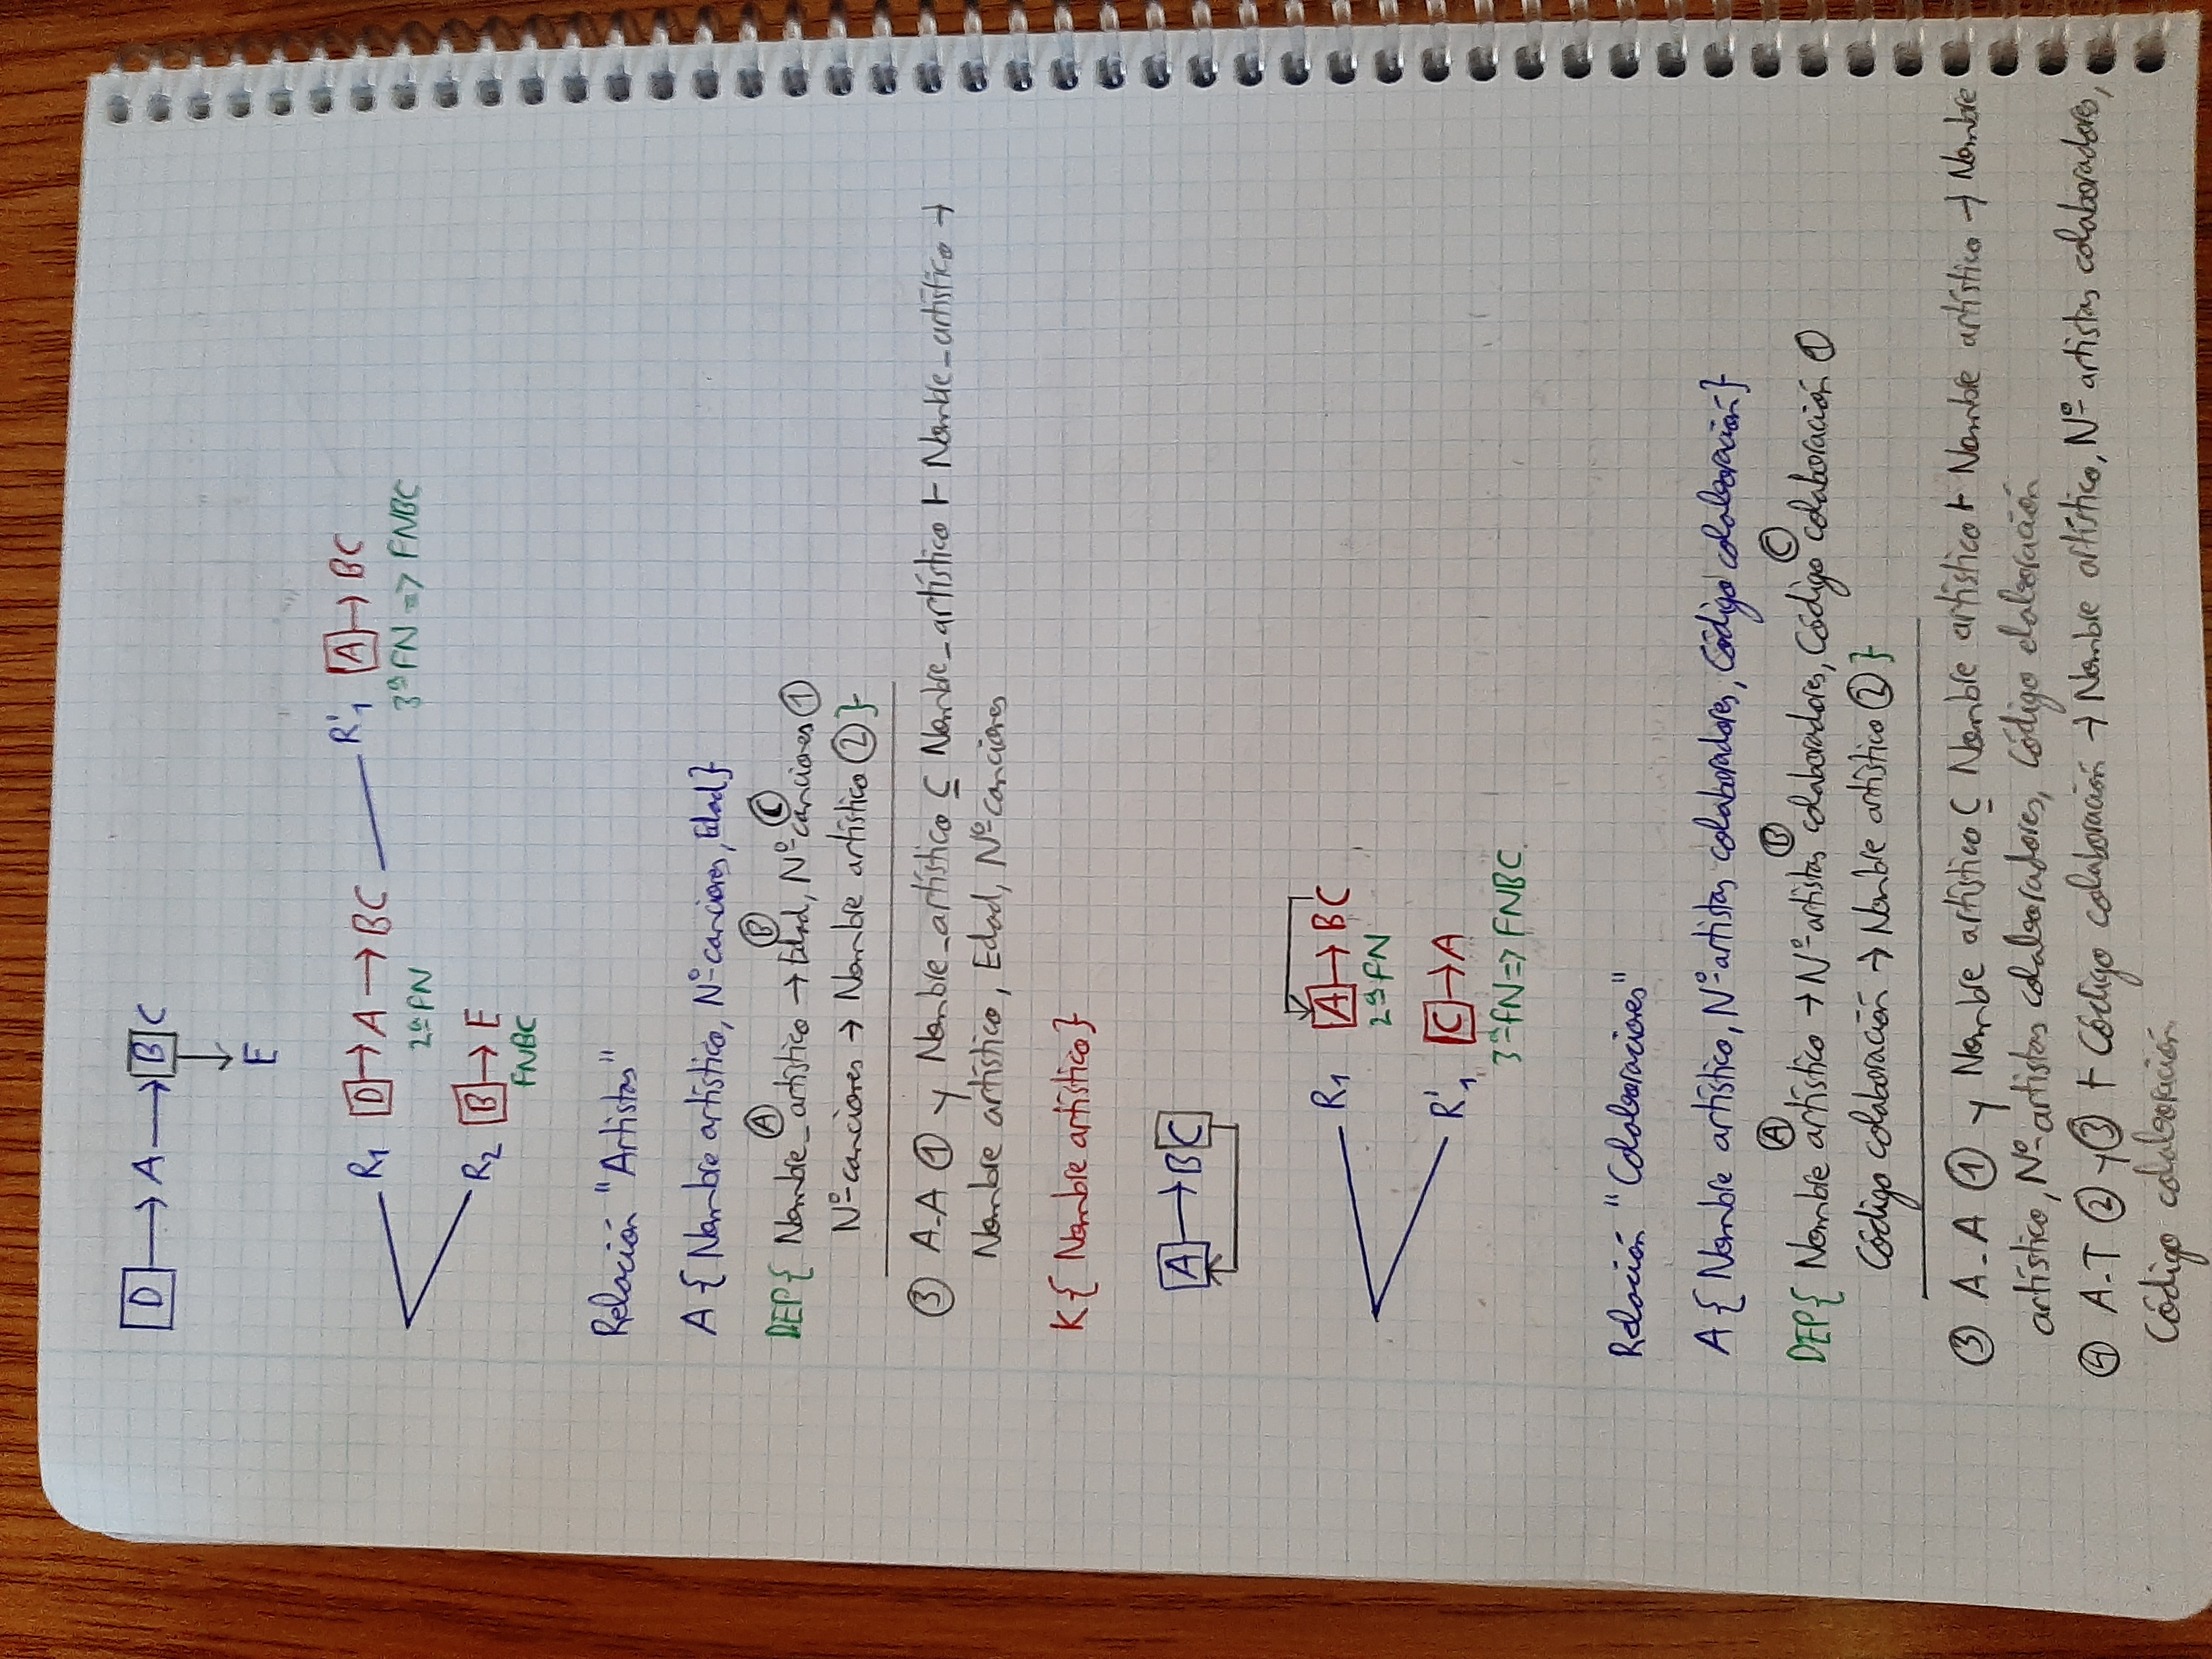 D → A → B C
↓
E
R₁ D → A → BC
2ª FN
R'₁ A → BC
3ª FN => FNBC
R₂ B → E
FNBC
Relación "Artistas"
A { Nombre artístico, Nº canciones, Edad }
A B C
DEP { Nombre_artístico → Edad, Nº canciones ①
Nº canciones → Nombre artístico ② }
③ A-A ① y Nombre_artístico ⊆ Nombre_artístico ⊢ Nombre_artístico →
Nombre artístico, Edad, Nº canciones
K { Nombre artístico }
A → B C
R₁ A → BC
2ª FN
R'₁ C → A
3ª FN => FNBC
Relación "Colaboraciones"
A { Nombre artístico, Nº artistas colaboradores, Código colaboración }
A B C
DEP { Nombre artístico → Nº artistas colaboradores, Código colaboración ①
Código colaboración → Nombre artístico ② }
③ A-A ① y Nombre artístico ⊆ Nombre artístico ⊢ Nombre artístico → Nombre
artístico, Nº artistas colaboradores, Código elaboración
④ A-T ② y ③ ⊢ Código colaboración → Nombre artístico, Nº artistas colaboradores,
Código colaboración